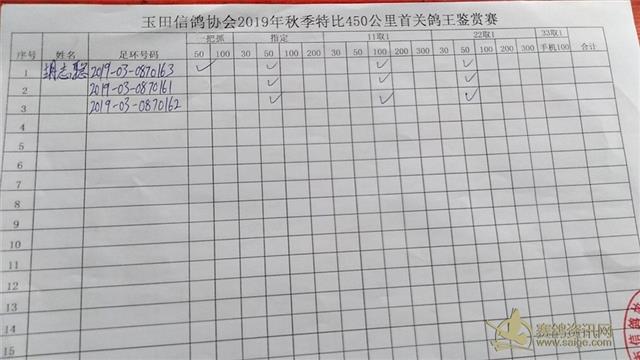 玉田信鸽协会2019年秋季特比450公里首关鸽王鉴赏赛
序号 姓名 足环号码 一把抓 指定 11取1 22取1 33取1 合计
50 100 30 50 100 200 300 30 50 100 200 300 30 50 100 200 300 手机100
1 胡志聪 2019-03-0870163 ✓ ✓ ✓
2 2019-03-0870161 ✓ ✓ ✓
3 2019-03-0870162 ✓ ✓ ✓
4
5
6
7
8
9
10
11
12
13
14
15
赛鸽资讯网
www.saige.com